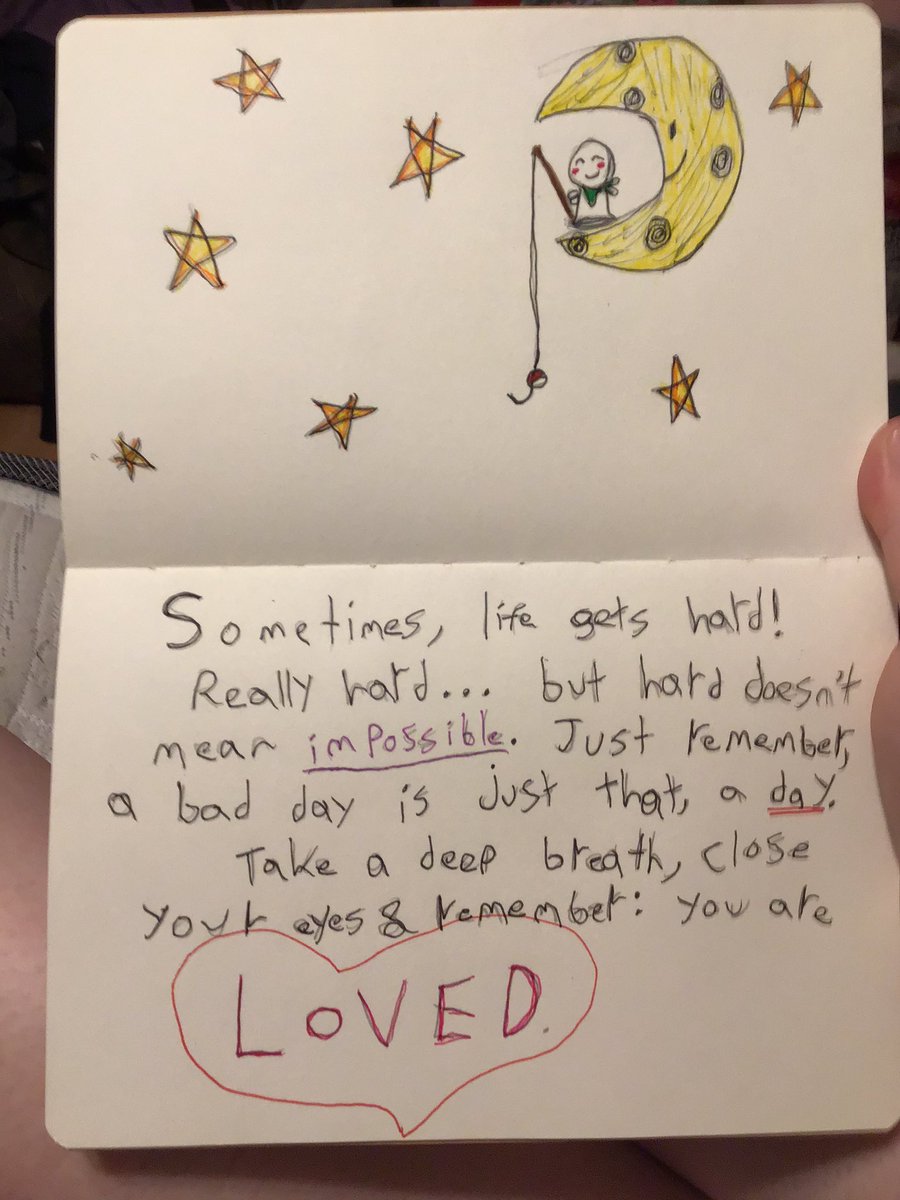 Sometimes, life gets hard!
Really hard... but hard doesn't
mean impossible. Just remember,
a bad day is just that, a day.
Take a deep breath, close
your eyes & remember: you are
LOVED.